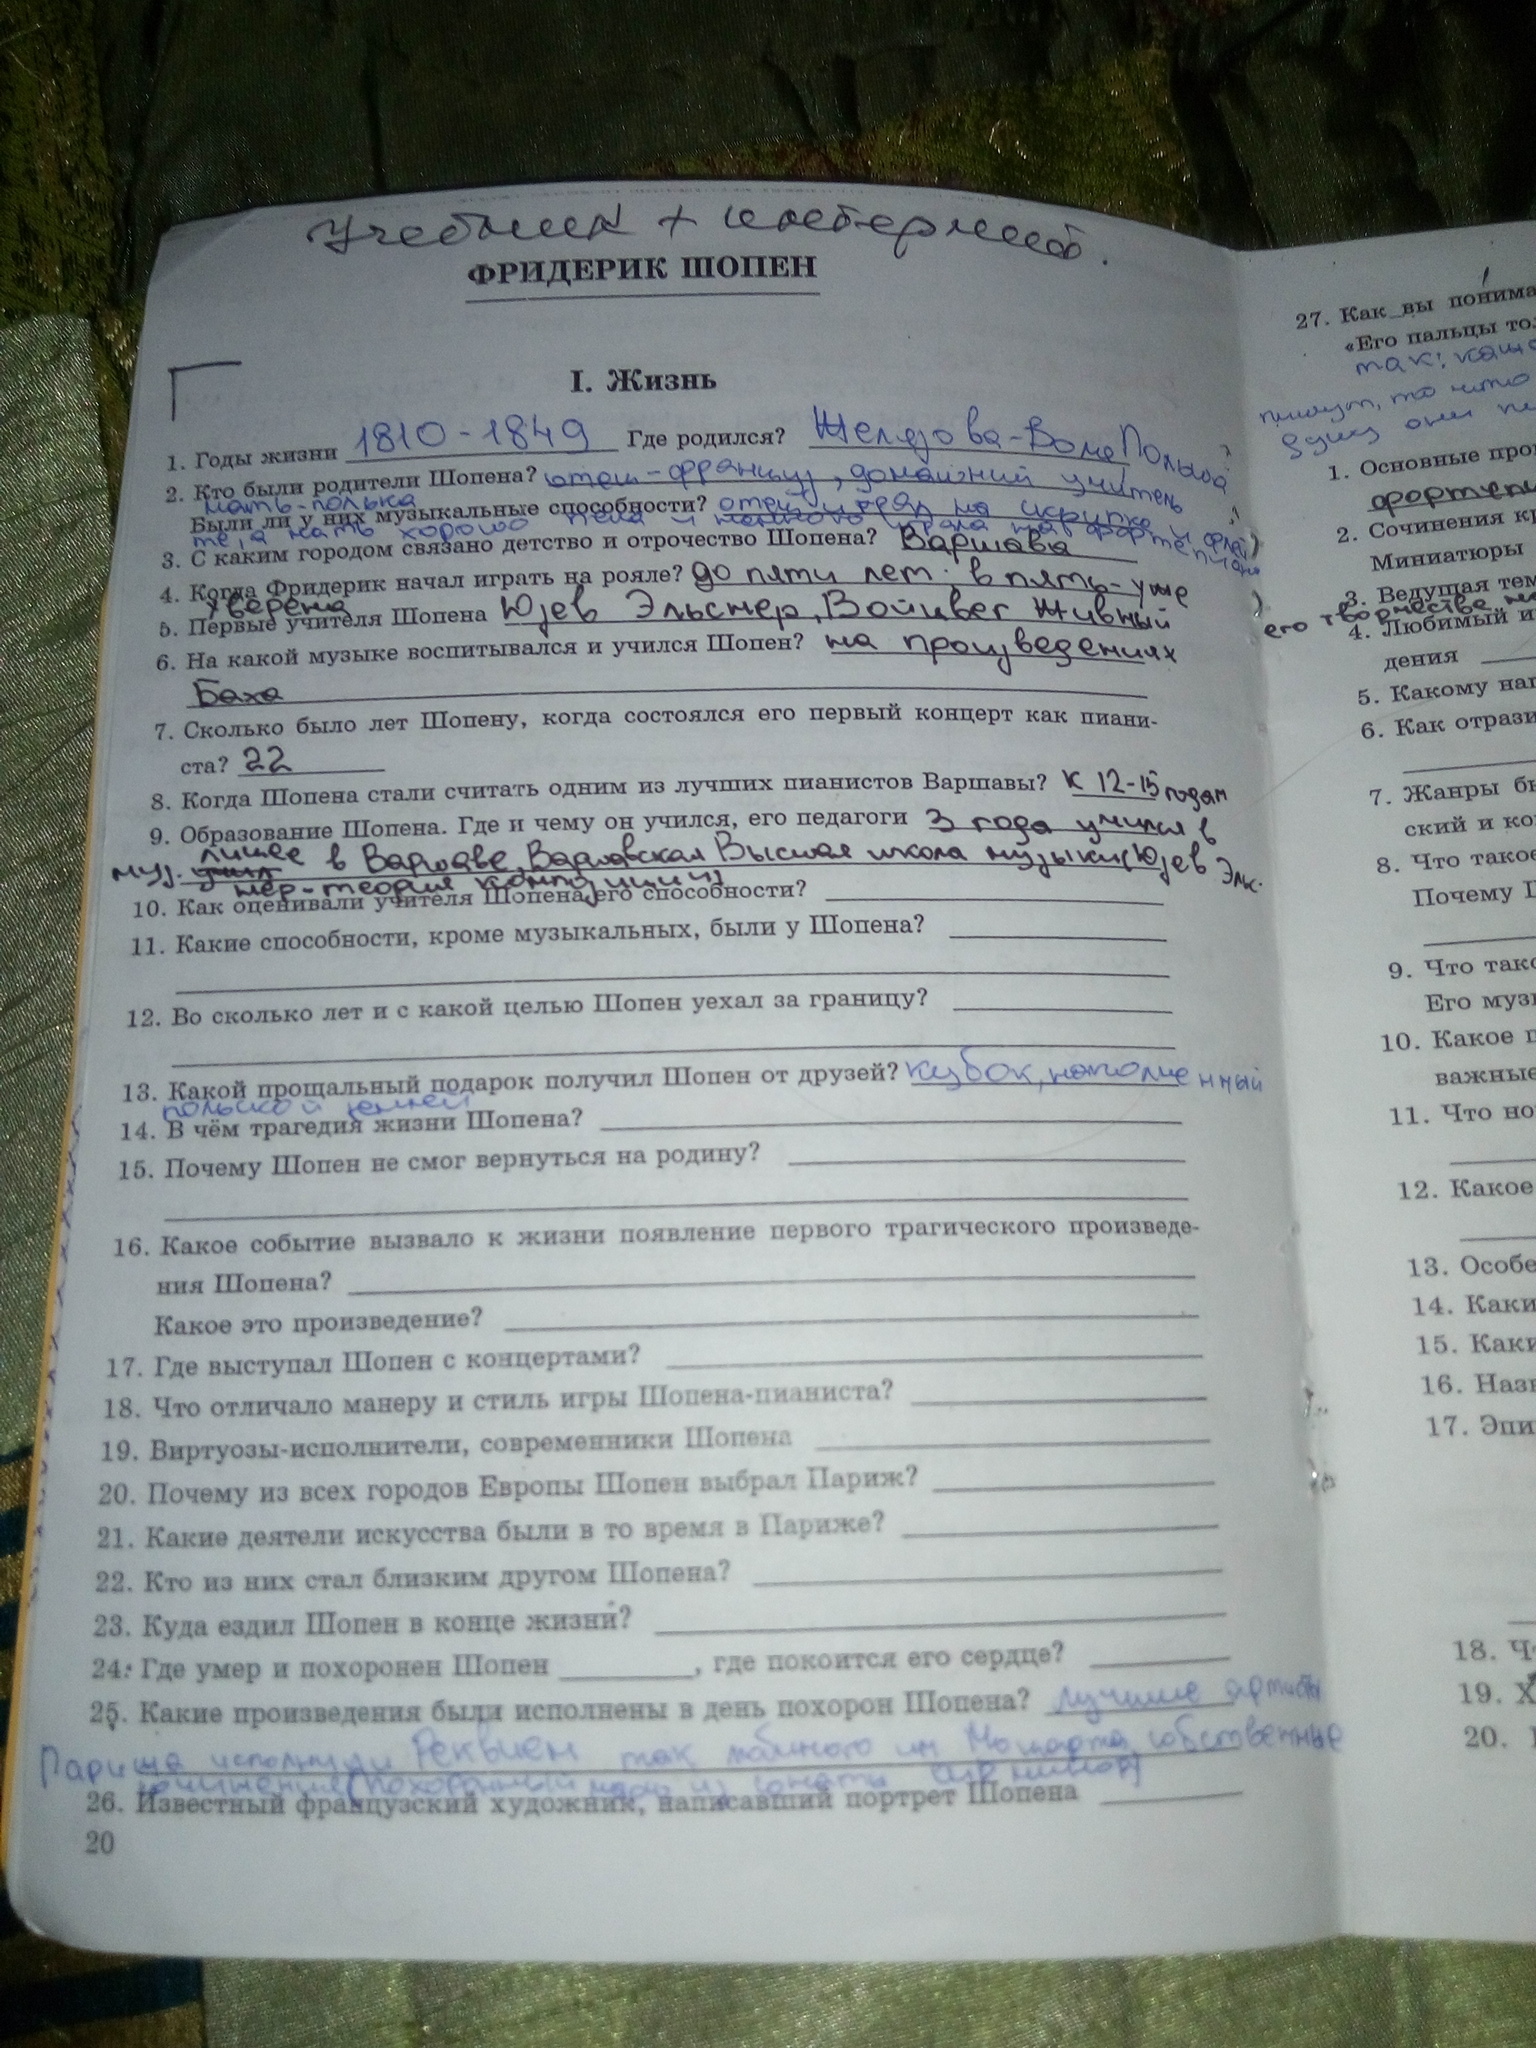 Учебник + интернет.
ФРИДЕРИК ШОПЕН
I. Жизнь
1. Годы жизни 1810-1849 Где родился? Желязова-Воля Польша
2. Кто были родители Шопена? отец-француз, домашний учитель
мать-полька
Были ли у них музыкальные способности? отец играл на скрипке и флей
те, а мать хорошо пела и немного играла на фортепиано
3. С каким городом связано детство и отрочество Шопена? Варшава
4. Когда Фридерик начал играть на рояле? до пяти лет; в пять-уже
уверено
5. Первые учителя Шопена Юзев Эльснер, Войцвег Живный
6. На какой музыке воспитывался и учился Шопен? на произведениях
Баха
7. Сколько было лет Шопену, когда состоялся его первый концерт как пиани-
ста? 22
8. Когда Шопена стали считать одним из лучших пианистов Варшавы? к 12-15 годам
9. Образование Шопена. Где и чему он учился, его педагоги 3 года учился в
муз. лицее в Варшаве, Варшавская Высшая школа музыки(Юзев Эльс.
нер-теория композиции)
10. Как оценивали учителя Шопена его способности?
11. Какие способности, кроме музыкальных, были у Шопена?
12. Во сколько лет и с какой целью Шопен уехал за границу?
13. Какой прощальный подарок получил Шопен от друзей? кубок, наполненный
польской землей
14. В чём трагедия жизни Шопена?
15. Почему Шопен не смог вернуться на родину?
16. Какое событие вызвало к жизни появление первого трагического произведе-
ния Шопена?
Какое это произведение?
17. Где выступал Шопен с концертами?
18. Что отличало манеру и стиль игры Шопена-пианиста?
19. Виртуозы-исполнители, современники Шопена
20. Почему из всех городов Европы Шопен выбрал Париж?
21. Какие деятели искусства были в то время в Париже?
22. Кто из них стал близким другом Шопена?
23. Куда ездил Шопен в конце жизни?
24. Где умер и похоронен Шопен , где покоится его сердце?
25. Какие произведения были исполнены в день похорон Шопена? лучшие артисты
Парижа исполнили Реквием так любимого им Моцарта, собственные
сочинения (похоронный марш из сонаты си b минор)
26. Известный французский художник, написавший портрет Шопена
20
27. Как вы понима
«Его пальцы тол
так:
то что
душу они
1. Основные про
фортепи
2. Сочинения кр
Миниатюры
3. Ведущая тем
его творчестве
4. Любимый и
дения
5. Какому нап
6. Как отрази
7. Жанры бы
ский и ко
8. Что такое
Почему П
9. Что тако
Его музы
10. Какое п
важные
11. Что но
12. Какое
13. Особе
14. Каки
15. Каки
16. Назв
17. Эпи
18. Ч
19. Х
20.